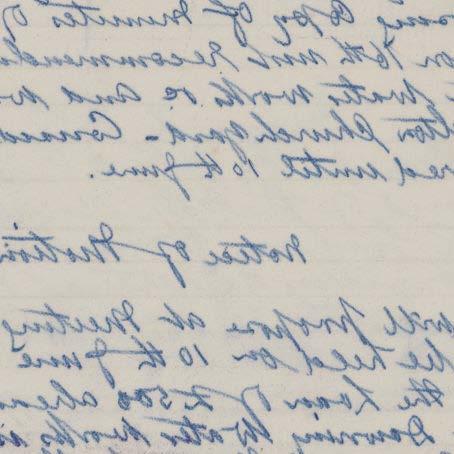 Copy of Minutes of
on 16th inst recommend
Water Works re and
Church Yard - Consid
red until 10th June.
Notice of Motion
will propose at Meeting
be held on 10th June
the Loan of £500 alrea
Downing Water Works